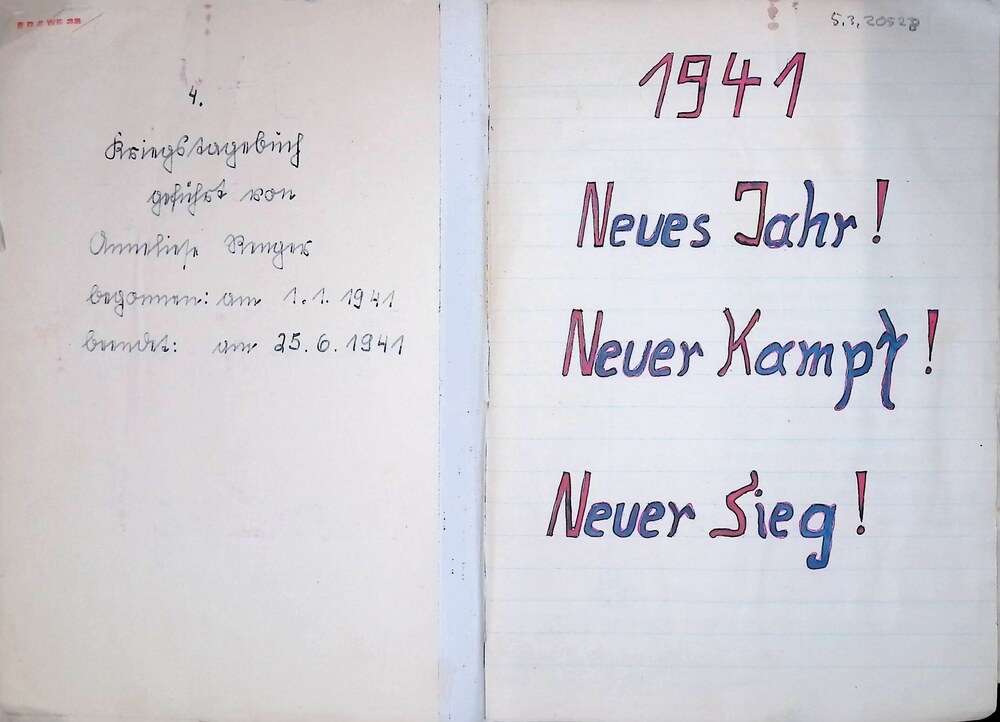 4.
Kriegstagebuch
geführt von
Anneliese
begonnen: am 1.1.1941
beendet: am 25.6.1941
5.3,20528
1941
Neues Jahr!
Neuer Kampf!
Neuer Sieg!